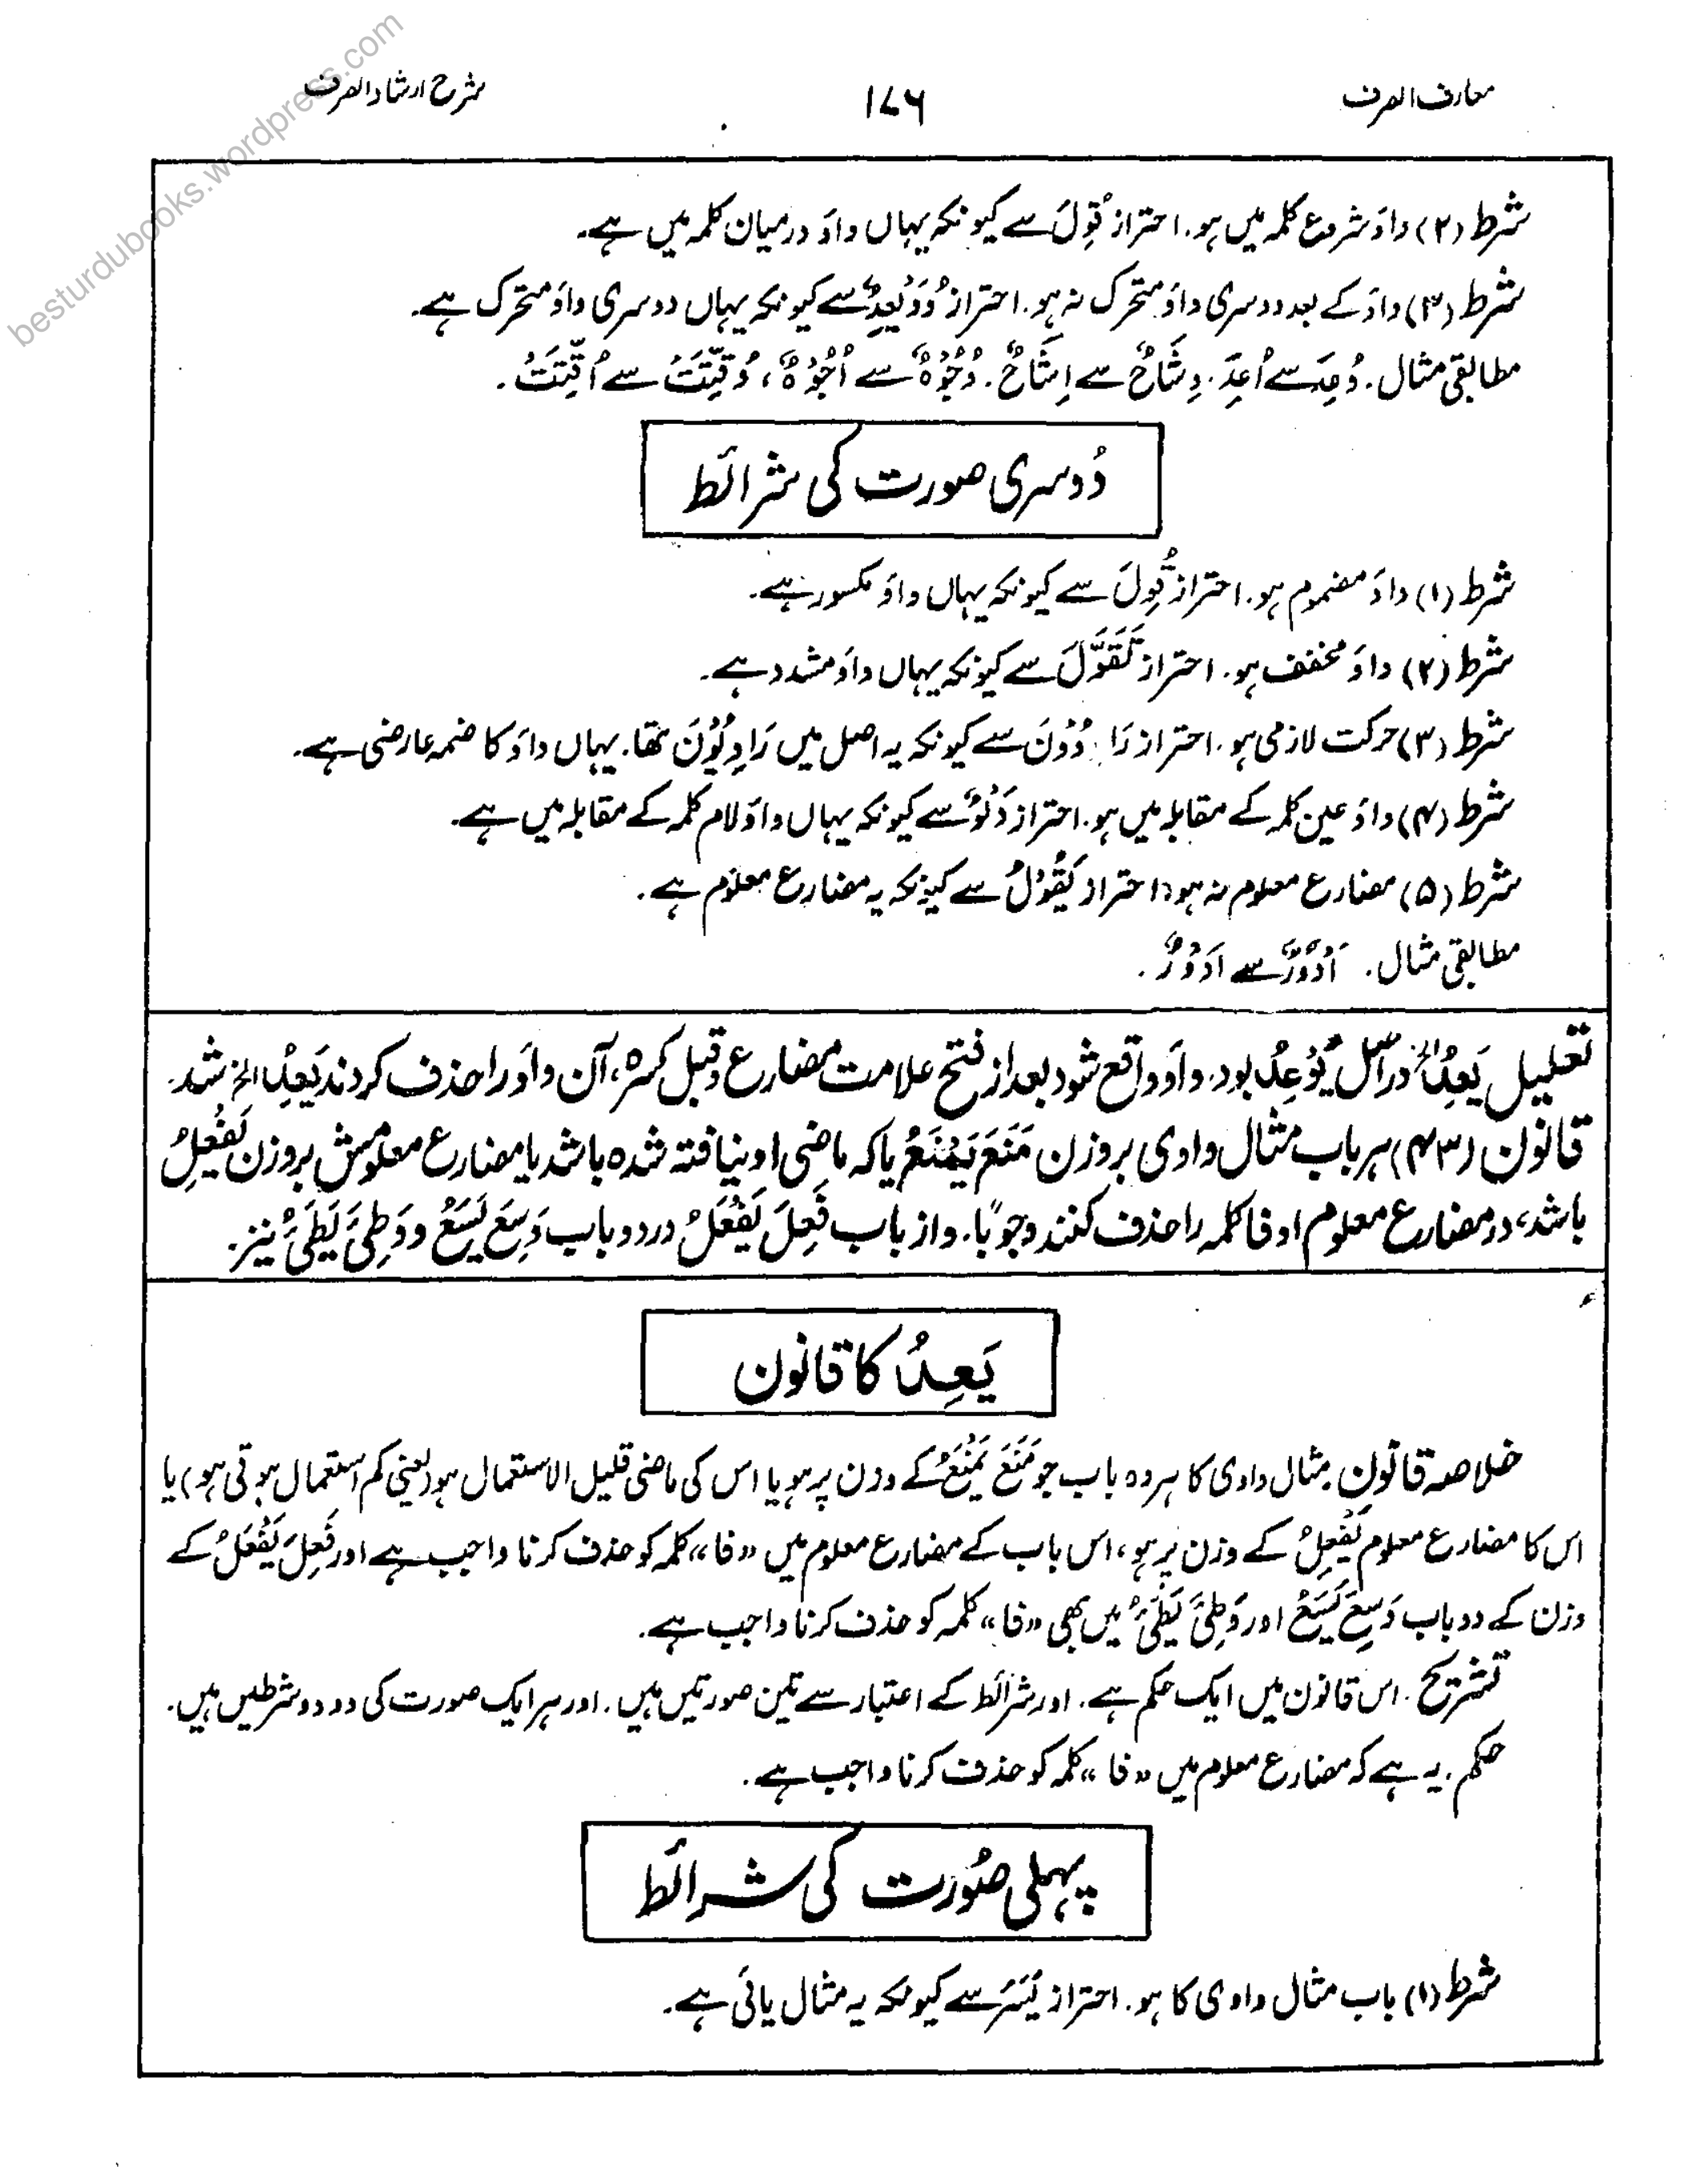 معارف الصرف
۱۷۶
شرح ارشاد الصرف
besturdubooks.wordpress.com
شرط (۲) واؤ شروع کلمہ میں ہو. احتراز قُوِلَ سے کیونکہ یہاں واؤ درمیان کلمہ میں ہے۔
شرط (۳) واؤ کے بعد دوسری واؤ متحرک نہ ہو. احتراز وُوَیْعِدٌ سے کیونکہ یہاں دوسری واؤ متحرک ہے۔
مطابقی مثال. وُعِدَ سے اُعِدَ. وِشَاحٌ سے اِشَاحٌ. وُجُوْہٌ سے اُجُوْہٌ، وُقِّتَتْ سے اُقِّتَتْ.
دُوسری صورت کی شرائط
شرط (۱) واؤ مضموم ہو. احتراز قُوِلَ سے کیونکہ یہاں واؤ مکسور ہے۔
شرط (۲) واؤ مخفف ہو. احتراز تَقَوَّلَ سے کیونکہ یہاں واؤ مشدد ہے۔
شرط (۳) حرکت لازمی ہو. احتراز رَا وُوْنَ سے کیونکہ یہ اصل میں رَاوِیُوْنَ تھا. یہاں واؤ کا ضمہ عارضی ہے۔
شرط (۴) واؤ عین کلمہ کے مقابلہ میں ہو. احتراز دَلْوٌ سے کیونکہ یہاں واؤ لام کلمہ کے مقابلہ میں ہے۔
شرط (۵) مضارع معلوم نہ ہو، احتراز یَقْوُلُ سے کیونکہ یہ مضارع معلوم ہے.
مطابقی مثال. اَدْوُرٌ سے اَدْؤُرٌ.
تعلیل یَعِدُ الخ دراصل یَوْعِدُ بود. واؤ واقع شود بعد از فتح علامت مضارع و قبل کسرہ، آن واؤ را حذف کردند یَعِدُ الخ شد.
قانون (۴۳) ہر باب مثال واوی بر وزن مَنَعَ یَمْنَعُ یا کہ ماضی او نیافتہ شدہ باشد یا مضارع معلومش بر وزن یَفْعِلُ
باشد، در مضارع معلوم او فا کلمہ را حذف کنند وجوبًا. و از باب فَعِلَ یَفْعَلُ در دو باب وَسِعَ یَسَعُ و وَطِیَٔ یَطَیُٔ نیز.
یَعِدُ کا قانون
خلاصہ قانون. مثال واوی کا ہر وہ باب جو مَنَعَ یَمْنَعُ کے وزن پر ہو یا اس کی ماضی قلیل الاستعمال ہو (یعنی کم استعمال ہوتی ہو) یا
اس کا مضارع معلوم یَفْعِلُ کے وزن پر ہو، اس باب کے مضارع معلوم میں «فا» کلمہ کو حذف کرنا واجب ہے اور فَعِلَ یَفْعَلُ کے
وزن کے دو باب وَسِعَ یَسَعُ اور وَطِیَٔ یَطَیُٔ میں بھی «فا» کلمہ کو حذف کرنا واجب ہے.
تشریح. اس قانون میں ایک حکم ہے. اور شرائط کے اعتبار سے تین صورتیں ہیں. اور ہر ایک صورت کی دو دو شرطیں ہیں.
حکم. یہ ہے کہ مضارع معلوم میں «فا» کلمہ کو حذف کرنا واجب ہے.
پہلی صُورت کی شرائط
شرط (۱) باب مثال واوی کا ہو. احتراز یَسَرَ سے کیونکہ یہ مثال یائی ہے۔